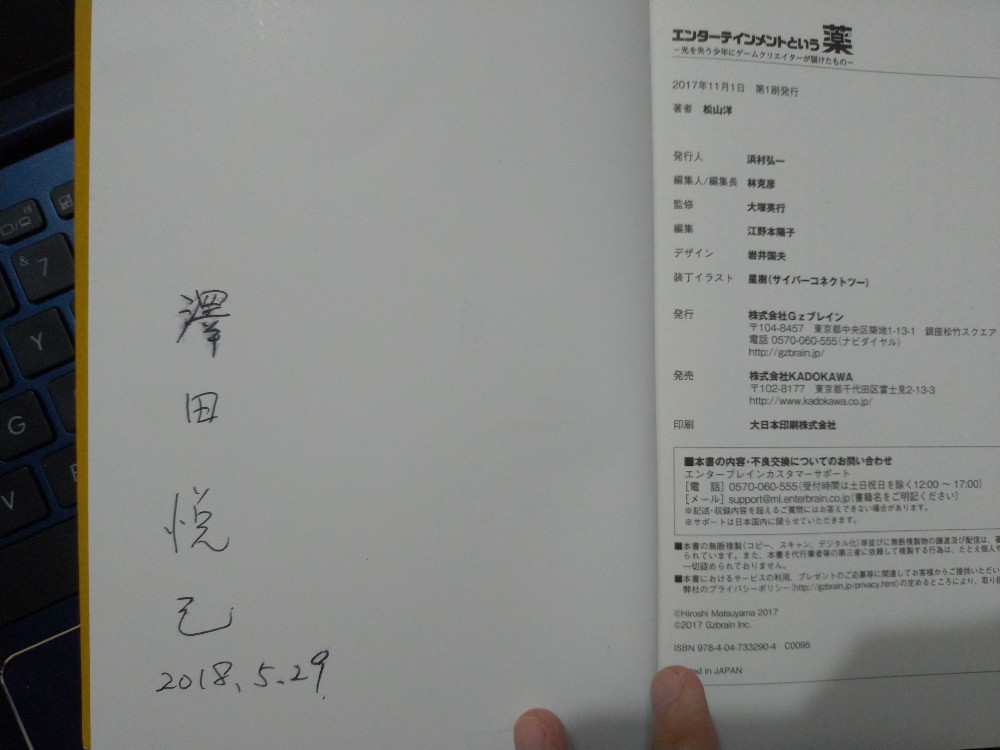 澤田悦己
2018.5.29.
エンターテインメントという薬
−光を失う少年にゲームクリエイターが届けたもの−
2017年11月1日 第1刷発行
著者 松山洋
発行人 浜村弘一
編集人/編集長 林克彦
監修 大塚英行
編集 江野本陽子
デザイン 岩井国夫
装丁イラスト 星樹(サイバーコネクトツー)
発行 株式会社Gzブレイン
〒104-8457 東京都中央区築地1-13-1 銀座松竹スクエア
電話 0570-060-555(ナビダイヤル)
http://gzbrain.jp/
発売 株式会社KADOKAWA
〒102-8177 東京都千代田区富士見2-13-3
http://www.kadokawa.co.jp/
印刷 大日本印刷株式会社
■本書の内容・不良交換についてのお問い合わせ
エンターブレインカスタマーサポート
[電 話] 0570-060-555(受付時間は土日祝日を除く12:00 〜 17:00)
[メール] support@ml.enterbrain.co.jp(書籍名をご明記ください)
※記述・収録内容を超えるご質問にはお答えできない場合があります。
※サポートは日本国内に限らせていただきます。
■本書の無断複製(コピー、スキャン、デジタル化)等並びに無断複製物の譲渡及び配信は、著
られています。また、本書を代行業者等の第三者に依頼して複製する行為は、たとえ個人や
一切認められておりません。
■本書におけるサービスの利用、プレゼントのご応募等に関連してお客様からご提供いただい
弊社のプライバシーポリシー(http://gzbrain.jp/privacy.html)の定めるところにより、取り扱
©Hiroshi Matsuyama 2017
©2017 Gzbrain Inc.
ISBN 978-4-04-733290-4 C0095
ed in JAPAN
& 7
Y
G
V